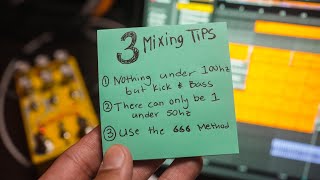 3 Mixing Tips
① Nothing under 100hz
but Kick & Bass
② There can only be 1
under 50hz
③ Use the 666 Method